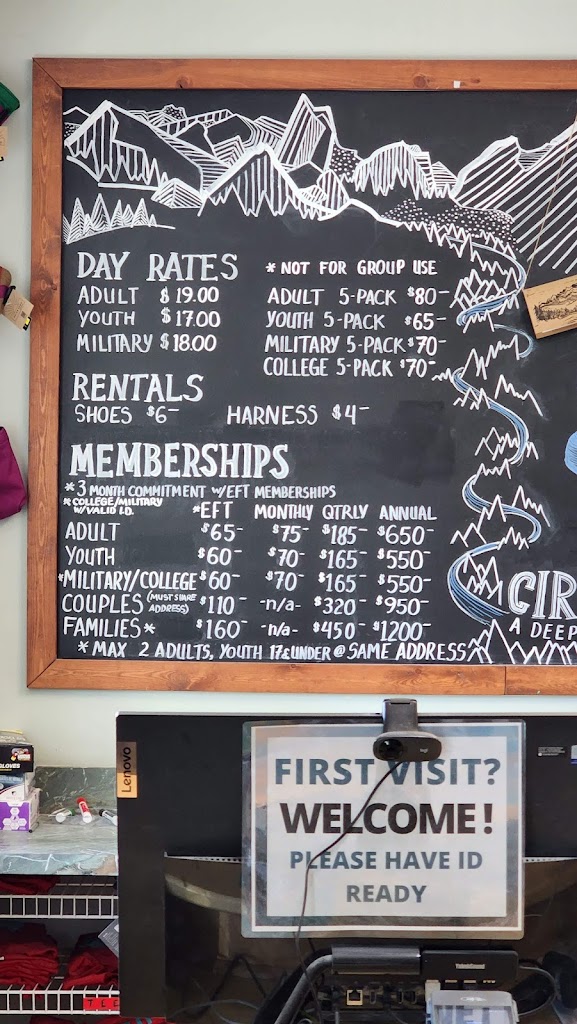 DAY RATES
* NOT FOR GROUP USE
ADULT $19.00
YOUTH $17.00
MILITARY $18.00
ADULT 5-PACK $80-
YOUTH 5-PACK $65-
MILITARY 5-PACK $70-
COLLEGE 5-PACK $70-
RENTALS
SHOES $6- HARNESS $4-
MEMBERSHIPS
* 3 MONTH COMMITMENT W/EFT MEMBERSHIPS
* COLLEGE/MILITARY
W/VALID I.D.
*EFT MONTHLY QTRLY ANNUAL
ADULT $65- $75- $185- $650-
YOUTH $60- $70- $165- $550-
*MILITARY/COLLEGE $60- $70- $165- $550-
COUPLES (MUST SHARE ADDRESS) $110- -n/a- $320- $950-
FAMILIES* $160- -n/a- $450- $1200-
* MAX 2 ADULTS, YOUTH 17&UNDER @ SAME ADDRESS
CIR
A DEEP
Lenovo
logi
FIRST VISIT?
WELCOME!
PLEASE HAVE ID
READY
GLOVES
TEE